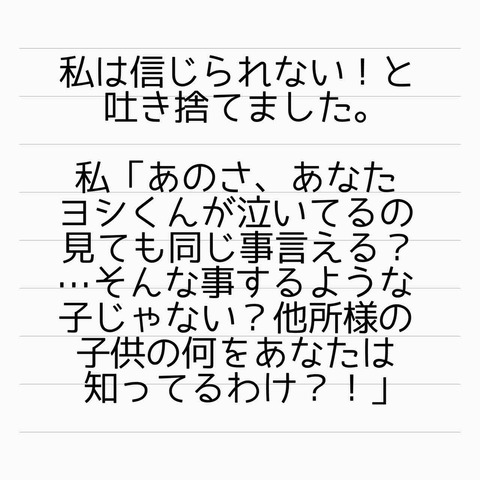 私は信じられない！と
吐き捨てました。
私「あのさ、あなた
ヨシくんが泣いてるの
見ても同じ事言える？
…そんな事するような
子じゃない？他所様の
子供の何をあなたは
知ってるわけ？！」